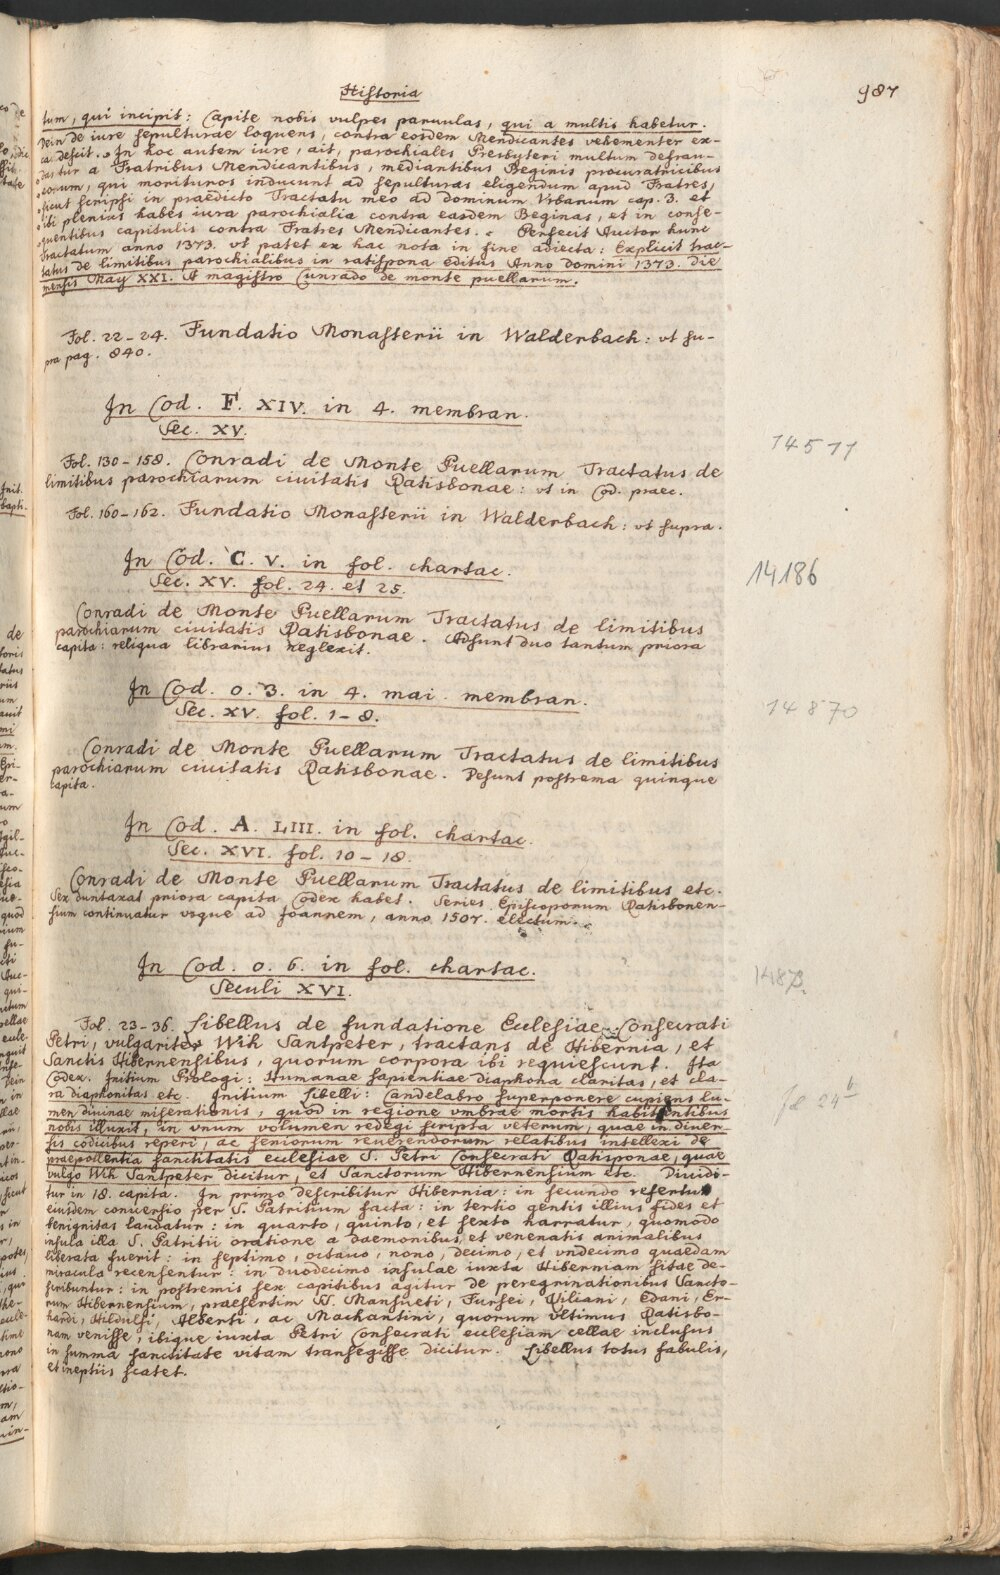 Historia
987
tum, qui incipit: Capite nobis vulpes paruulas, qui a multis habetur.
Dein de iure sepulturae loquens, contra eosdem Mendicantes vehementer ex-
candescit. „In hoc autem iure, ait, parochiales Presbyteri multum defrau-
„dantur a Fratribus Mendicantibus, mediantibus Beginis procuratricibus
„eorum, qui morituros inducunt ad sepulturas eligendum apud Fratres,
„sicut scripsi in praedicto Tractatu meo ad dominum Vrbanum cap. 3. et
„ibi plenius habes iura parochialia contra easdem Beginas, et in conse-
„quentibus capitulis contra Fratres Mendicantes. „ Perfecit Auctor hunc
Tractatum anno 1373. vt patet ex hac nota in fine adiecta: Explicit trac-
tatus de limitibus parochialibus in ratispona editus Anno domini 1373. die
mensis May XXI. A magistro Cunrado de monte puellarum.
Fol. 22-24. Fundatio Monasterii in Walderbach: vt su-
pra pag. 840.
In Cod. F. XIV. in 4. membran.
Sec. XV.
14511
Fol. 130-158. Conradi de Monte Puellarum Tractatus de
limitibus parochiarum ciuitatis Ratisbonae: vt in Cod. praec.
Fol. 160-162. Fundatio Monasterii in Walderbach: vt supra.
In Cod. C. V. in fol. chartac.
Sec. XV. fol. 24. et 25.
14186
Conradi de Monte Puellarum Tractatus de limitibus
parochiarum ciuitatis Ratisbonae. Adsunt duo tantum priora
capita: reliqua librarius neglexit.
In Cod. O. 3. in 4. mai. membran.
Sec. XV. fol. 1-8.
14870
Conradi de Monte Puellarum Tractatus de limitibus
parochiarum ciuitatis Ratisbonae. Desunt postrema quinque
capita.
In Cod. A. LIII. in fol. chartac.
Sec. XVI. fol. 10-18.
Conradi de Monte Puellarum Tractatus de limitibus etc.
Sex duntaxat priora capita Codex habet. Series Episcoporum Ratisbonen-
sium continuatur vsque ad Joannem, anno 1507. electum.
In Cod. O. 6. in fol. chartac.
Seculi XVI.
14873
Fol. 23-36. Libellus de fundatione Ecclesiae Consecrati
Petri, vulgariter Wih Santpeter, tractans de Hibernia, et
Sanctis Hibernensibus, quorum corpora ibi requiescunt. Ita
Codex. Initium Prologi: Humanae sapientiae diaphona claritas, et cla-
ra diaphonitas etc. Initium Libelli: Candelabro superponere cupiens lu-
men diuinae miserationis, quod in regione vmbrae mortis habitantibus
nobis illuxit, in vnum volumen redegi scripta veterum, quae in diuer-
sis codicibus reperi, ac seniorum reuerendorum relatibus intellexi de
praepollentia sanctitatis ecclesiae S. Petri Consecrati Ratisponae, quae
vulgo Wih Santpeter dicitur, et Sanctorum Hibernensium etc. Diuidi-
tur in 18. capita. In primo describitur Hibernia: in secundo refertur
eiusdem conuersio per S. Patritium facta: in tertio gentis illius fides et
benignitas laudatur: in quarto, quinto, et sexto narratur, quomodo
insula illa S. Patritii oratione a daemonibus et venenatis animalibus
liberata fuerit: in septimo, octauo, nono, decimo, et vndecimo quaedam
miracula recensentur: in duodecimo insulae iuxta Hiberniam sitae de-
scribuntur: in postremis sex capitibus agitur de peregrinationibus Sancto-
rum Hibernensium, praesertim SS. Mansueti, Fursei, Kiliani, Edani, Er-
hardi, Hildulfi, Alberti, ac Machantini, quorum vltimus Ratisbo-
nam venisse, ibique iuxta Petri Consecrati ecclesiam cellae inclusus
in summa sanctitate vitam transegisse dicitur. Libellus totus fabulis,
et ineptiis scatet.